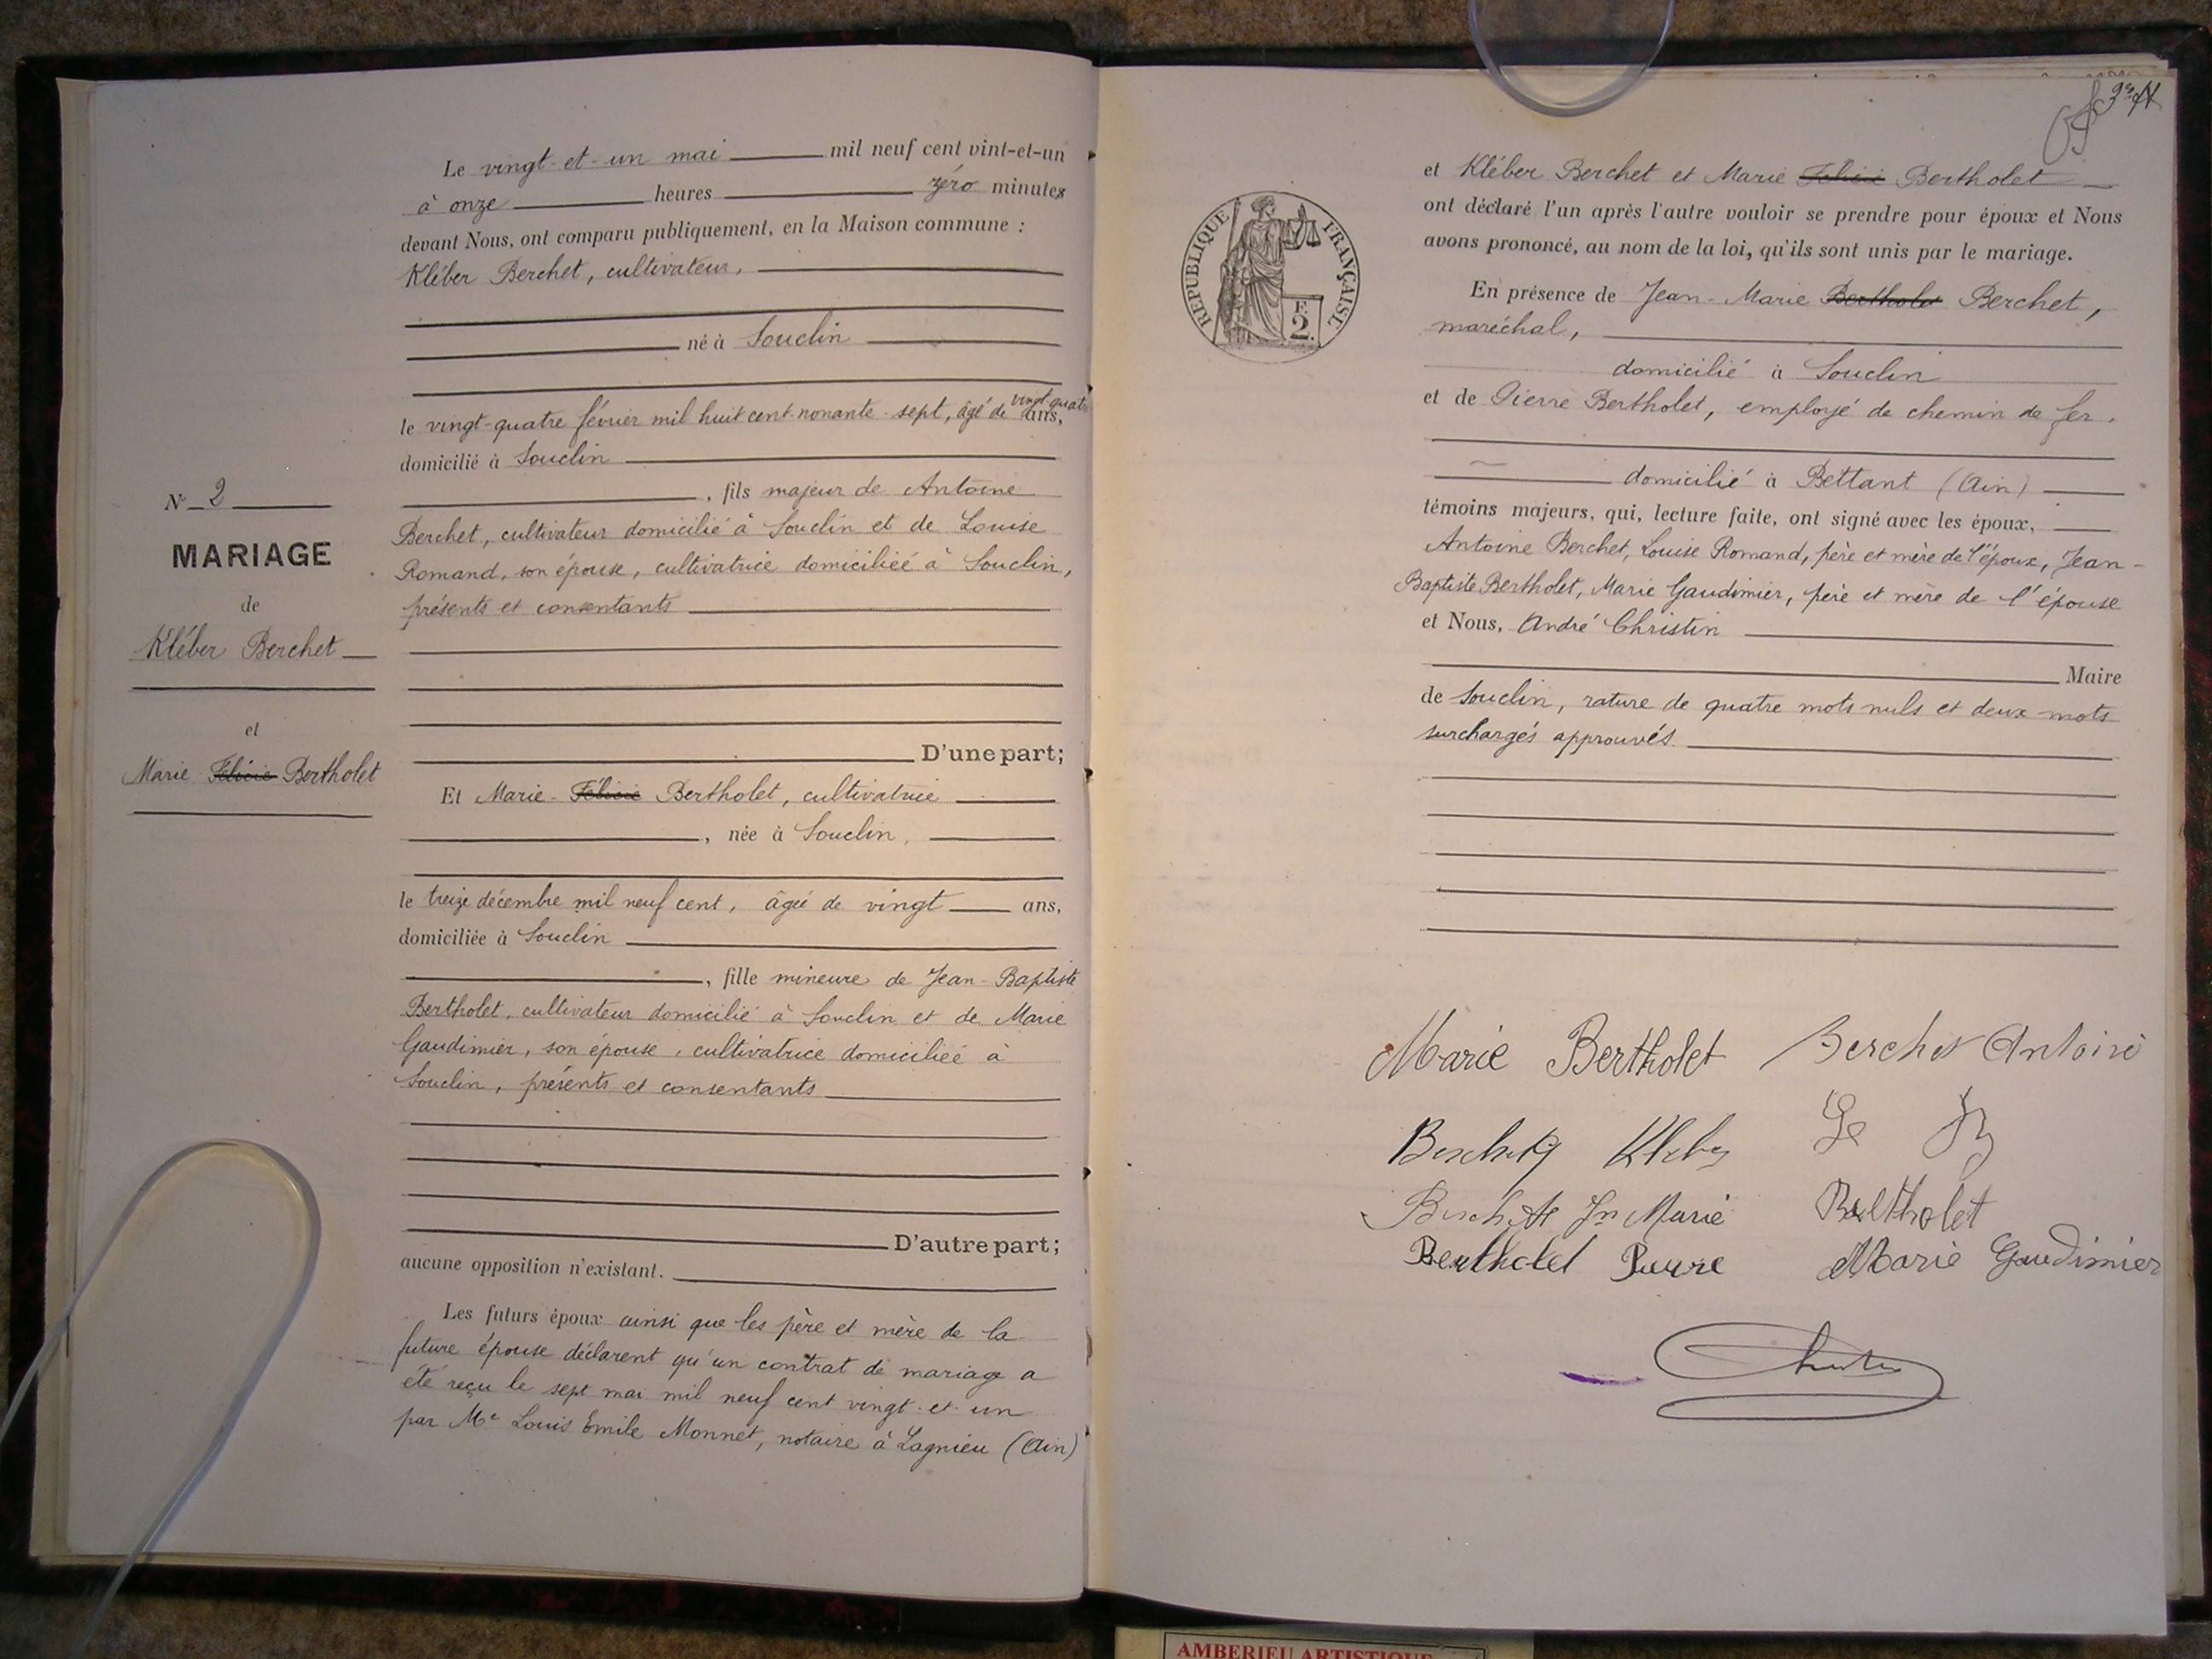 N° 2
MARIAGE
de
Kléber Berchet
et
Marie Félicie Bertholet
Le vingt-et-un mai mil neuf cent vint-et-un
à onze heures zéro minutes
devant Nous, ont comparu publiquement, en la Maison commune :
Kléber Berchet, cultivateur,
né à Souclin
vingt quatre
le vingt-quatre février mil huit cent nonante-sept, âgé de ans,
domicilié à Souclin
, fils majeur de Antoine
Berchet, cultivateur domicilié à Souclin et de Louise
Romand, son épouse, cultivatrice domiciliée à Souclin,
présents et consentants
D'une part;
Et Marie-Félicie Bertholet, cultivatrice
, née à Souclin,
le treize décembre mil neuf cent, âgée de vingt ans,
domiciliée à Souclin
, fille mineure de Jean-Baptiste
Bertholet, cultivateur domicilié à Souclin et de Marie
Gaudimier, son épouse, cultivatrice domiciliée à
Souclin, présents et consentants
D'autre part;
aucune opposition n'existant.
Les futurs époux ainsi que les père et mère de la
future épouse déclarent qu'un contrat de mariage a
été reçu le sept mai mil neuf cent vingt-et-un
par Me Louis Emile Monnet, notaire à Lagnieu (Ain)
RÉPUBLIQUE FRANÇAISE
F.
2.
et Kléber Berchet et Marie Félicie Bertholet
ont déclaré l'un après l'autre vouloir se prendre pour époux et Nous
avons prononcé, au nom de la loi, qu'ils sont unis par le mariage.
En présence de Jean-Marie Bertholet Berchet,
maréchal,
domicilié à Souclin
et de Pierre Bertholet, employé de chemin de fer,
domicilié à Bettant (Ain)
témoins majeurs, qui, lecture faite, ont signé avec les époux,
Antoine Berchet, Louise Romand, père et mère de l'époux, Jean-
Baptiste Bertholet, Marie Gaudimier, père et mère de l'épouse
et Nous, André Christin
Maire
de Souclin, rature de quatre mots nuls et deux mots
surchargés approuvés.
Marie Bertholet Berchet Antoine
Berchet Kleber
Berchet Jn Marie Bertholet
Bertholet Pierre Marie Gaudimier
AMBERIEU ARTISTIQUE